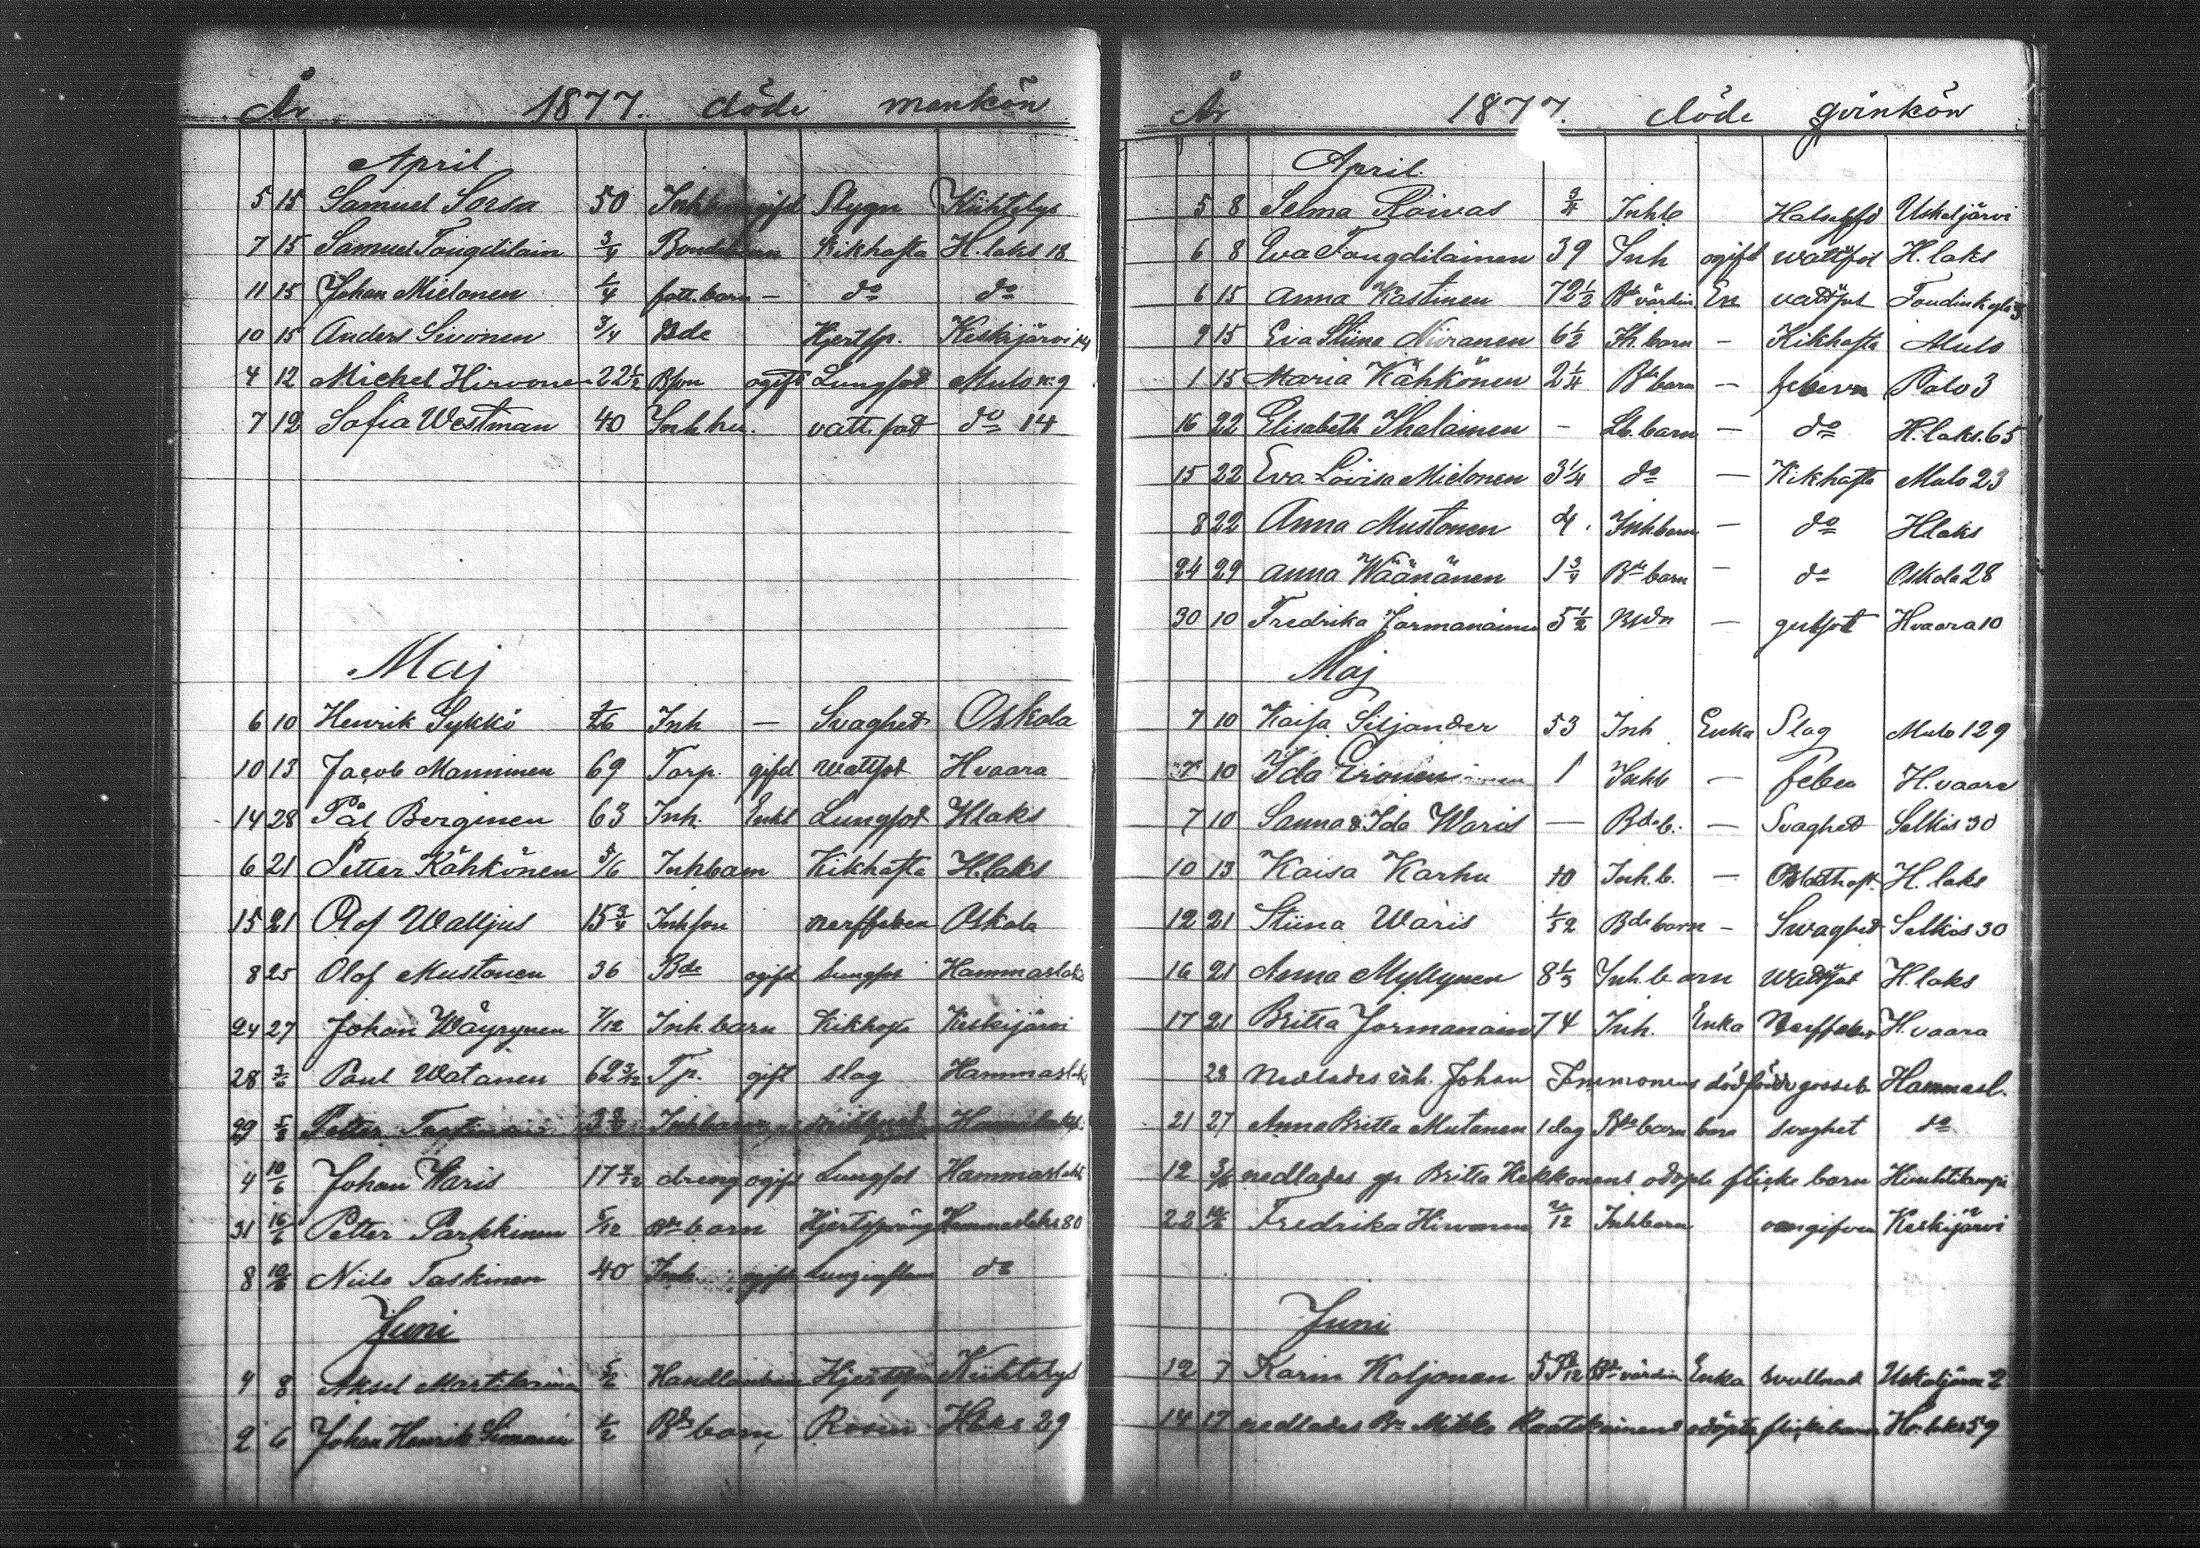 År 1877. döde mankön
April
5 15 Samuel Sorsa 50 gift Stygn Kiihtelys
7 15 Samuel 3/4 Kikhosta H. laks 18
11 15 Johan Mielonen 1/4 fatt. barn — do do
10 15 Anders Sivonen 3/4 Bde Hjertsp. Keskijärvi 14
4 12 Michel Hirvonen 22 1/2 Bson ogift Lungsot Mulo n: 9
7 12 Sofia Westman 40 Inh hu. vatt. sot do 14
Maj
6 10 Henrik Sykkö Inh — Svaghet Oskola
10 13 Jacob Manninen 69 Torp. gift wattsot Hvaara
14 28 Pål Berginen 63 Inh. Enkl Lungsot Hlaks
6 21 Petter Kähkönen 5/6 Inhbarn Kikhosta H. laks
15 21 Olof Walljus 15 3/4 Inhson nerffeber Oskola
8 25 Olof Mustonen 36 Bde ogift Lungsot Hammaslaks
24 27 Johan Wäyrynen 7/12 Inh. barn Kikhosta Keskijärvi
28 3/6 Paul Watanen 62 3/12 Tp. gift slag Hammaslak
29 Petter Inhbarn
4 10/6 Johan Waris 17 7/12 dreng ogift Lungsot Hammaslaks
31 16/6 Petter Parkkinen 5/12 Bde barn Hjertsprång Hammaslaks 80
8 10/6 Niilo Taskinen 40 Inh gift Lunginflam do
Juni
4 8 Aksel Martikainen Kiihtelys
2 6 Johan Henrik 1/2 Bde barn Rosen Hlaks 29
År 1877. döde qvinkön
April.
5 8 Selma Roivas 3/4 Inhb Uskaljärvi
6 8 Eva 39 Inh ogift wattsot H. laks
6 15 Anna Kastinen 72 1/2 Bde värdin En vattsot
9 15 Eva Stiina Niiranen 6 1/2 Ih. barn — Kikhosta Mulo
1 15 Maria Kähkönen 2 1/4 Bde barn — febern Palo 3
16 22 Elisabeth Ihalainen — Lb. barn — do H. laks. 65
15 22 Eva Lovisa Mielonen 3 1/4 do — Kikhosta Mulo 23
8 22 Anna Mustonen 4. Inhbarn — do Hlaks
24 29 Anna Wäänänen 1 3/4 Bde barn — do Oskola 28
30 10 Fredrika Jormanainen 5 1/2 — gulsot Hvaara 10
Maj
7 10 Kaisa Siljander 53 Inh Enka Slag Mulo 129
7 10 Ida Eronen 1 Inhb — feber H. vaara
7 10 Sanna & Ida Waris — Bde b. — Svaghet Selkis 30
10 13 Kaisa Karhu 10 Inh. b. — H. laks
12 21 Stiina Waris 1/52 Bde barn — Svaghet Selkis 30
16 21 Anna Myllynen 8 1/3 Inh. barn wattsot H. laks
17 21 Britta Jormanain 74 Inh. Enka Nerffeber H. vaara
28 Nedlades inh. Johan Immonens dödfödde gosseb. Hammasl.
21 27 Anna Britta Mutanen 1 dag Bde barn barn svaghet do
12 3/6 nedlades gp Britta Kekkonens odöpte flicke barn
22 10/6 Fredrika Hirvonen 2/12 Inhbarn oangifven Keskijärvi
Juni
12 7 Karin Koljonen Bde värdin Enka svullnad Uskaljärvi 2
14 17 nedlades Bn Mikko odöpta flickebarn H. laks 59